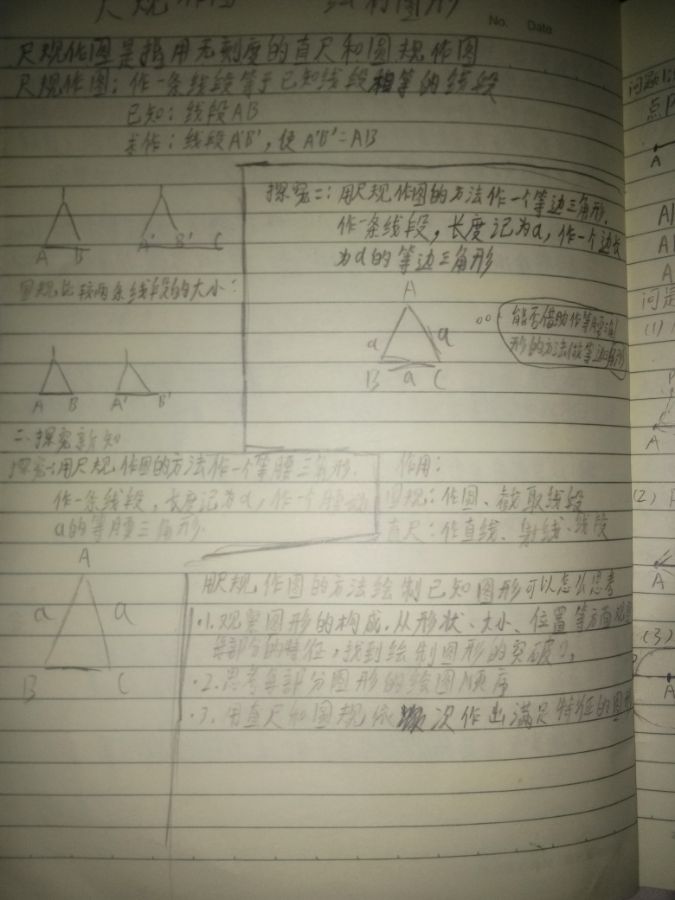 尺规作图 绘制图形
No. Date
尺规作图是指用无刻度的直尺和圆规作图
尺规作图：作一条线段等于已知线段相等的线段
已知：线段AB
求作：线段A'B'，使A'B'=AB
A B A' B' C
圆规比较两条线段的大小：
A B A' B'
探究二：用尺规作图的方法作一个等边三角形.
作一条线段，长度记为a，作一个边长
为a的等边三角形
A
a a
B a C
能否借助作等腰三角
形的方法做等边三角形
二、探究新知
探究一：用尺规作图的方法作一个等腰三角形.
作一条线段，长度记为a，作一个腰为
a的等腰三角形.
A
a a
B C
作用：
圆规：作圆、截取线段
直尺：作直线、射线、线段
用尺规作图的方法绘制已知图形可以怎么思考
·1.观察图形的构成.从形状、大小、位置等方面观察
每部分的特征，找到绘制图形的突破口。
·2.思考每部分图形的绘图顺序
·3.用直尺和圆规依次作出满足特征的图形
问题1:
点
A
A
A
A
(1)
A
(2)
A
(3)
A